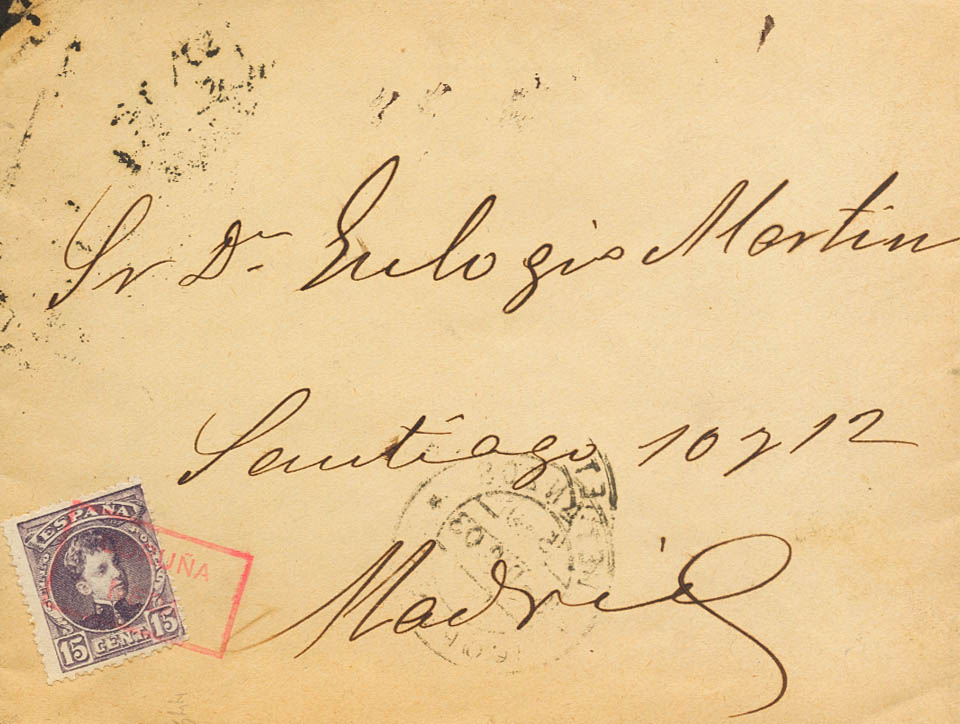 Sr Dn Eulogio Martin
Santiago 10 y 12
Madrid
ESPAÑA
15 CENT. 15
UÑA
03